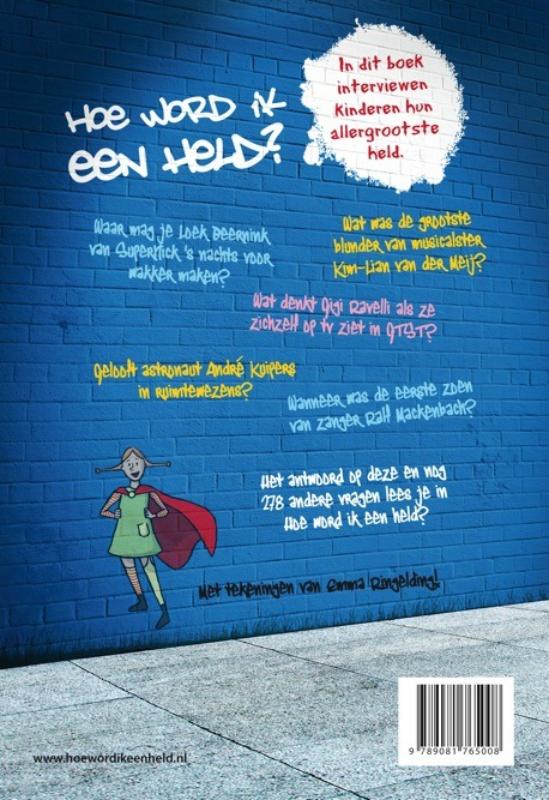 Hoe word ik
een held?
In dit boek
interviewen
kinderen hun
allergrootste
held.
Waar mag je Loek Beernink
van Superkick 's nachts voor
wakker maken?
Wat was de grootste
blunder van musicalster
Kim-Lian van der Meij?
Wat denkt Gigi Ravelli als ze
zichzelf op tv ziet in GTST?
Gelooft astronaut André Kuipers
in ruimtewezens?
Wanneer was de eerste zoen
van zanger Ralf Mackenbach?
Het antwoord op deze en nog
278 andere vragen lees je in
Hoe word ik een held?
Met tekeningen van Emma Ringelding!
www.hoewordikeenheld.nl
9 789081 765008